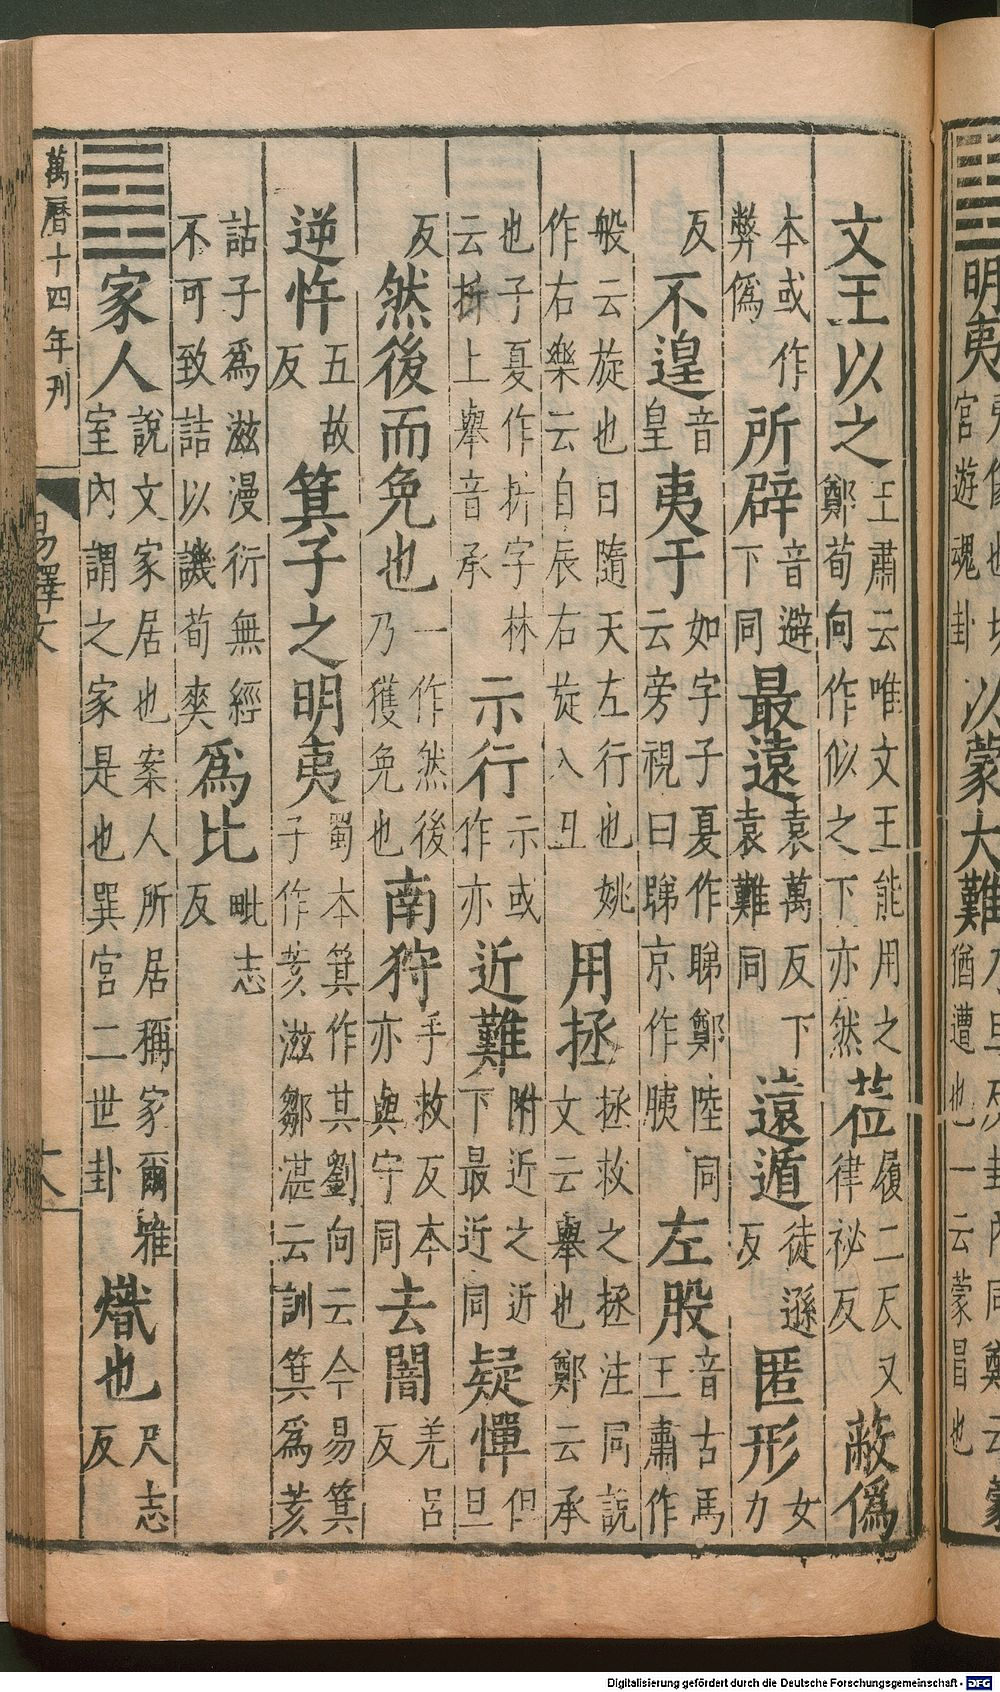 明夷夷傷也坎宮遊魂卦以蒙大難乃旦反卦內同鄭云蒙猶遭也一云蒙冒也
文王以之王肅云唯文王能用之鄭荀向作似之下亦然莅履二反又律祕反蔽偽
本或作弊偽所辟音避下同最遠袁萬反下袁難同遠遁徒遜反匿形女力
反不遑音皇夷于如字子夏作睇鄭陸同云旁視曰睇京作胰左股音古馬王肅作
般云旋也日隨天左行也姚作右樂云自辰右旋入丑用拯拯救之拯注同說文云舉也鄭云承
也子夏作抍字林云抍上舉音承示行示或作亦近難附近之近下最近同疑憚但旦
反然後而免也一作然後乃獲免也南狩手救反本亦與守同去闇羌呂反
逆忤五故反箕子之明夷蜀本箕作其劉向云今易箕子作荄滋鄒湛云訓箕爲荄
詁子爲滋漫衍無經不可致詰以譏荀爽爲比毗志反
家人說文家居也案人所居稱家爾雅室內謂之家是也巽宮二世卦熾也尺志反
萬曆十四年刊
易釋文
六
Digitalisierung gefördert durch die Deutsche Forschungsgemeinschaft - DFG